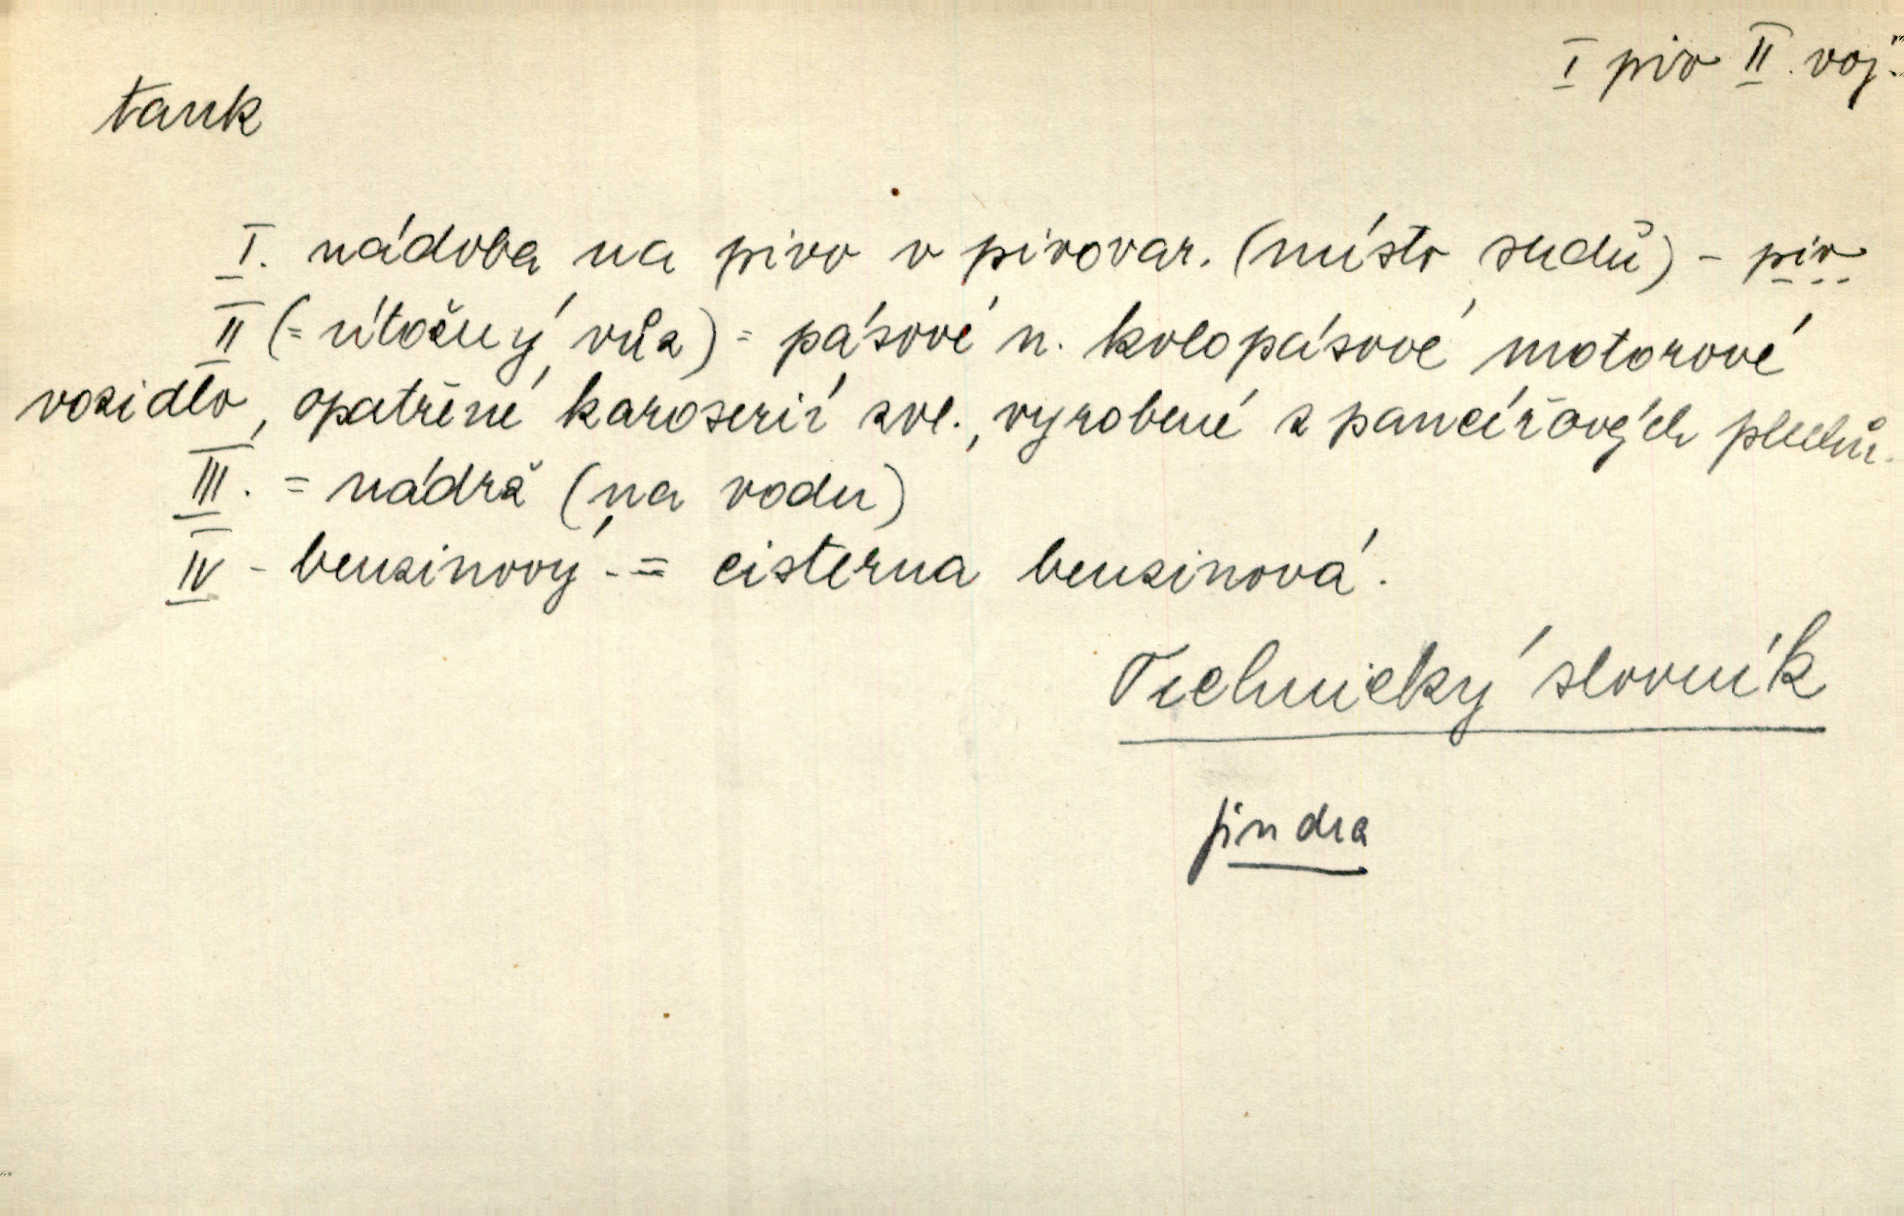 I piv II. voj.
tank
I. nádoba na pivo v pivovar. (místo sudů) - piv
II (= útočný vůz) = pásové n. kolopásové motorové
vozidlo, opatřené karoserií zvl., vyrobené z pancéřových plechů.
III. = nádrž (na vodu)
IV - benzinový - = cisterna benzinová.
Technický slovník
Jindra